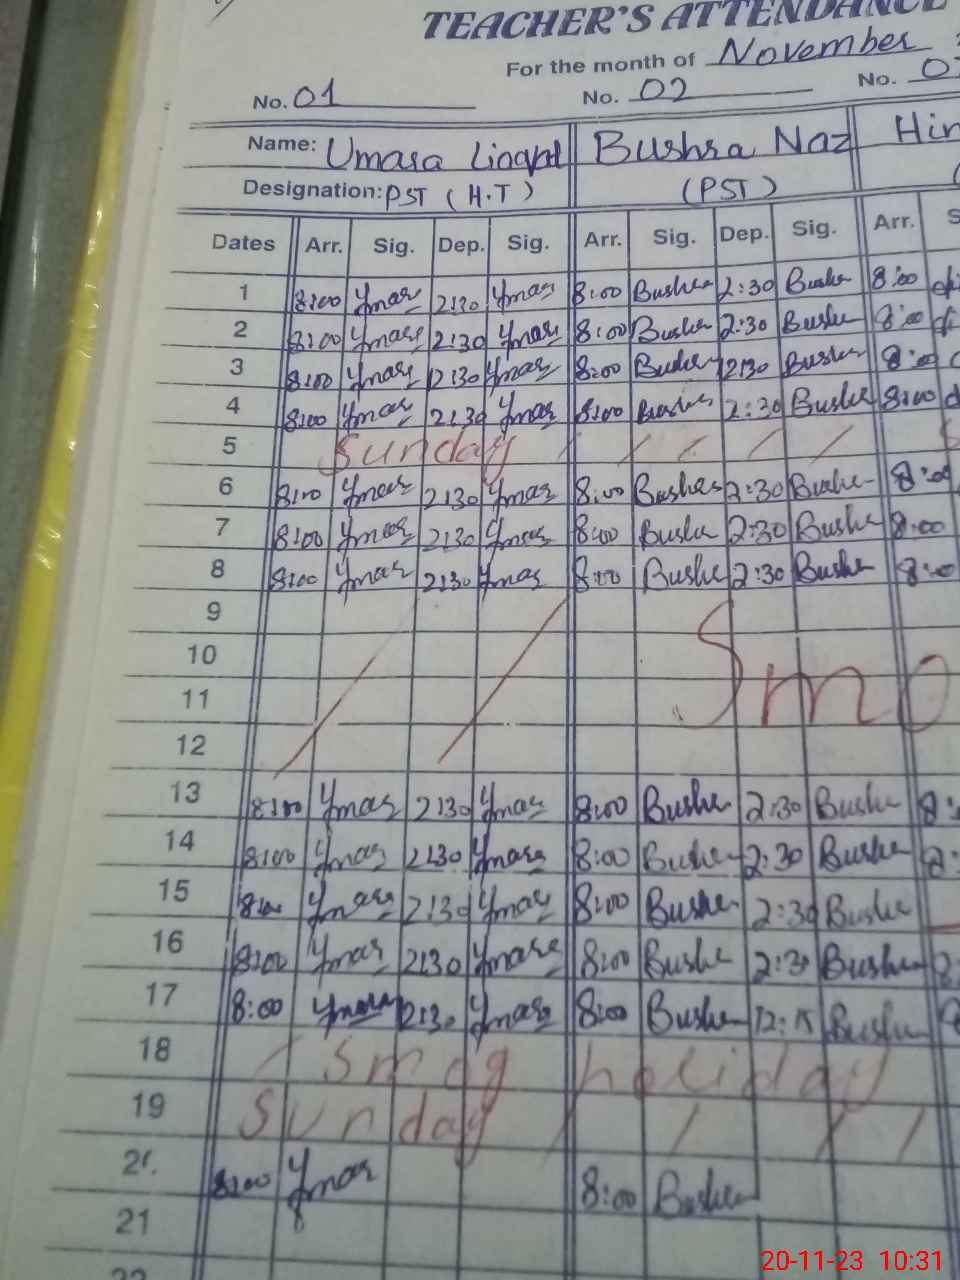 TEACHER'S ATTENDANCE
For the month of November
No. 01 No. 02 No.
Name: Umara Bushra Naz Hin
Designation: PST (H.T) (PST)
Dates Arr. Sig. Dep. Sig. Arr. Sig. Dep. Sig. Arr. S
1 8:00 Ymar 2:30 Ymar 8:00 Bushra 2:30 Bushra 8:00
2 8:00 Ymar 2:30 Ymar 8:00 Bushra 2:30 Bushra 8:00
3 8:00 Ymar 2:30 Ymar 8:00 Bushra 2:30 Bushra 8:00
4 8:00 Ymar 2:30 Ymar 8:00 Bushra 2:30 Bushra 8:00
5 Sunday / / / / / S
6 8:00 Ymar 2:30 Ymar 8:00 Bushra 2:30 Bushra 8:00
7 8:00 Ymar 2:30 Ymar 8:00 Bushra 2:30 Bushra 8:00
8 8:00 Ymar 2:30 Ymar 8:00 Bushra 2:30 Bushra 8:00
9
10 Smo
11
12
13 8:00 Ymar 2:30 Ymar 8:00 Bushra 2:30 Bushra 8:
14 8:00 Ymar 2:30 Ymar 8:00 Bushra 2:30 Bushra 8:
15 8:00 Ymar 2:30 Ymar 8:00 Bushra 2:30 Bushra
16 8:00 Ymar 2:30 Ymar 8:00 Bushra 2:30 Bushra 8:
17 8:00 Ymar 2:30 Ymar 8:00 Bushra 12:15 Bushra 8
18 Smog holiday
19 Sunday / / / /
20 8:00 Ymar 8:00 Bushra
21
20-11-23 10:31